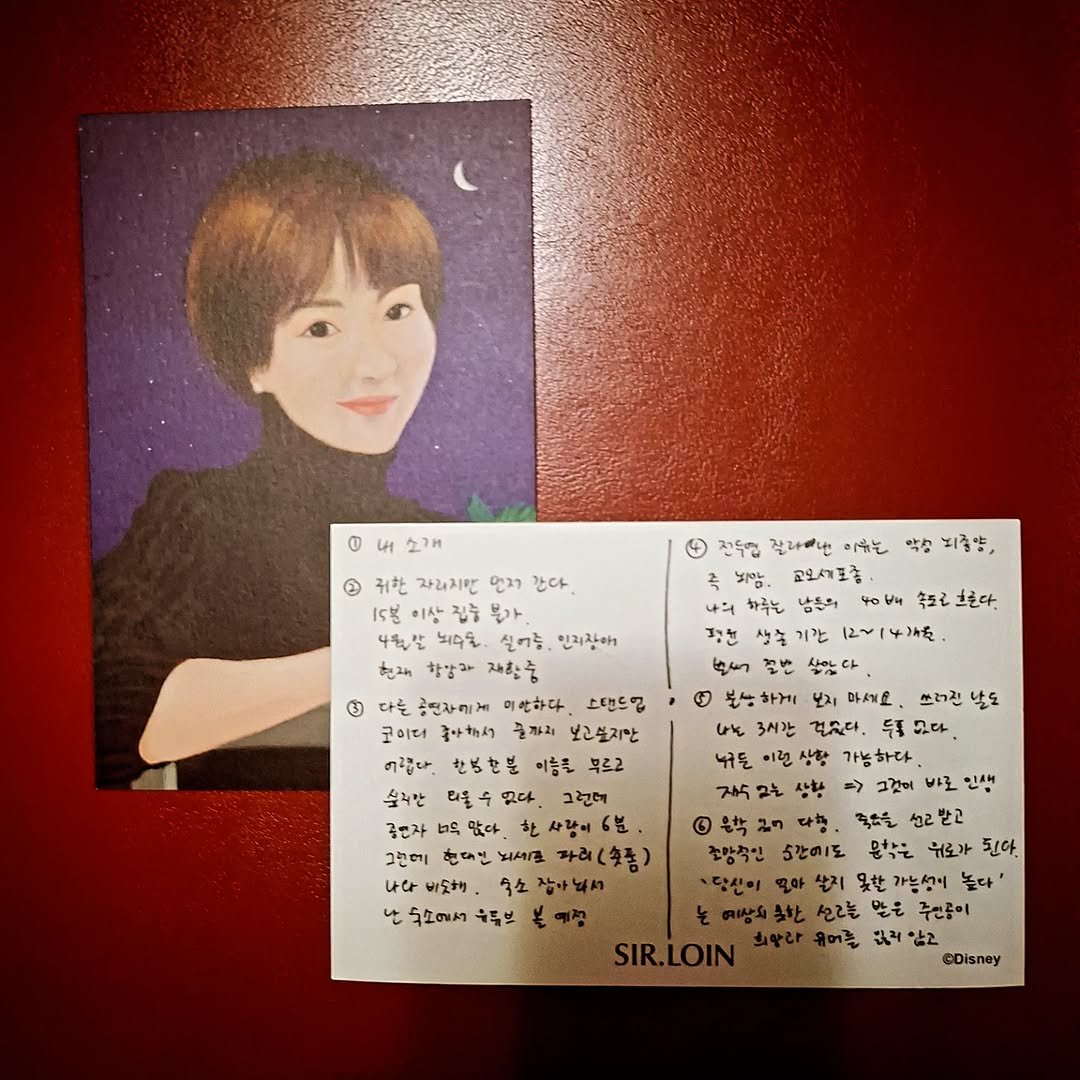 ① 내 소개
② 귀한 자리지만 먼저 간다.
15분 이상 집중 불가.
4월 말 뇌수술. 실어증. 인지장애
현재 항암과 재활 중
③ 다른 공연자에게 미안하다. 스탠드업
코미디 좋아해서 끝까지 보고싶지만
어렵다. 한분 한분 이름을 부르고
싶지만 외울 수 없다. 그런데
공연자 너무 많다. 한 사람이 6분.
그런데 현대인 뇌세포 파괴(숏폼)
나와 비슷해. 숙소 잡아놔서
난 숙소에서 유튜브 볼 예정
④ 전두엽 잘라낸 이유는 악성 뇌종양,
즉 뇌암. 교모세포종.
나의 하루는 남들의 40배 속도로 흐른다.
평균 생존 기간 12~14개월.
벌써 절반 살았다.
⑤ 불쌍하게 보지 마세요. 쓰러진 날도
나는 3시간 걸었다. 두통 없다.
누구든 이런 상황 가능하다.
재수 없는 상황 => 그것이 바로 인생
⑥ 문학 있어 다행. 죽음을 선고받고
절망적인 순간에도 문학은 위로가 된다.
'당신이 얼마 살지 못할 가능성이 높다'
는 예상치 못한 선고를 받은 주인공이
희망과 유머를 잃지 않고
SIR.LOIN
©Disney